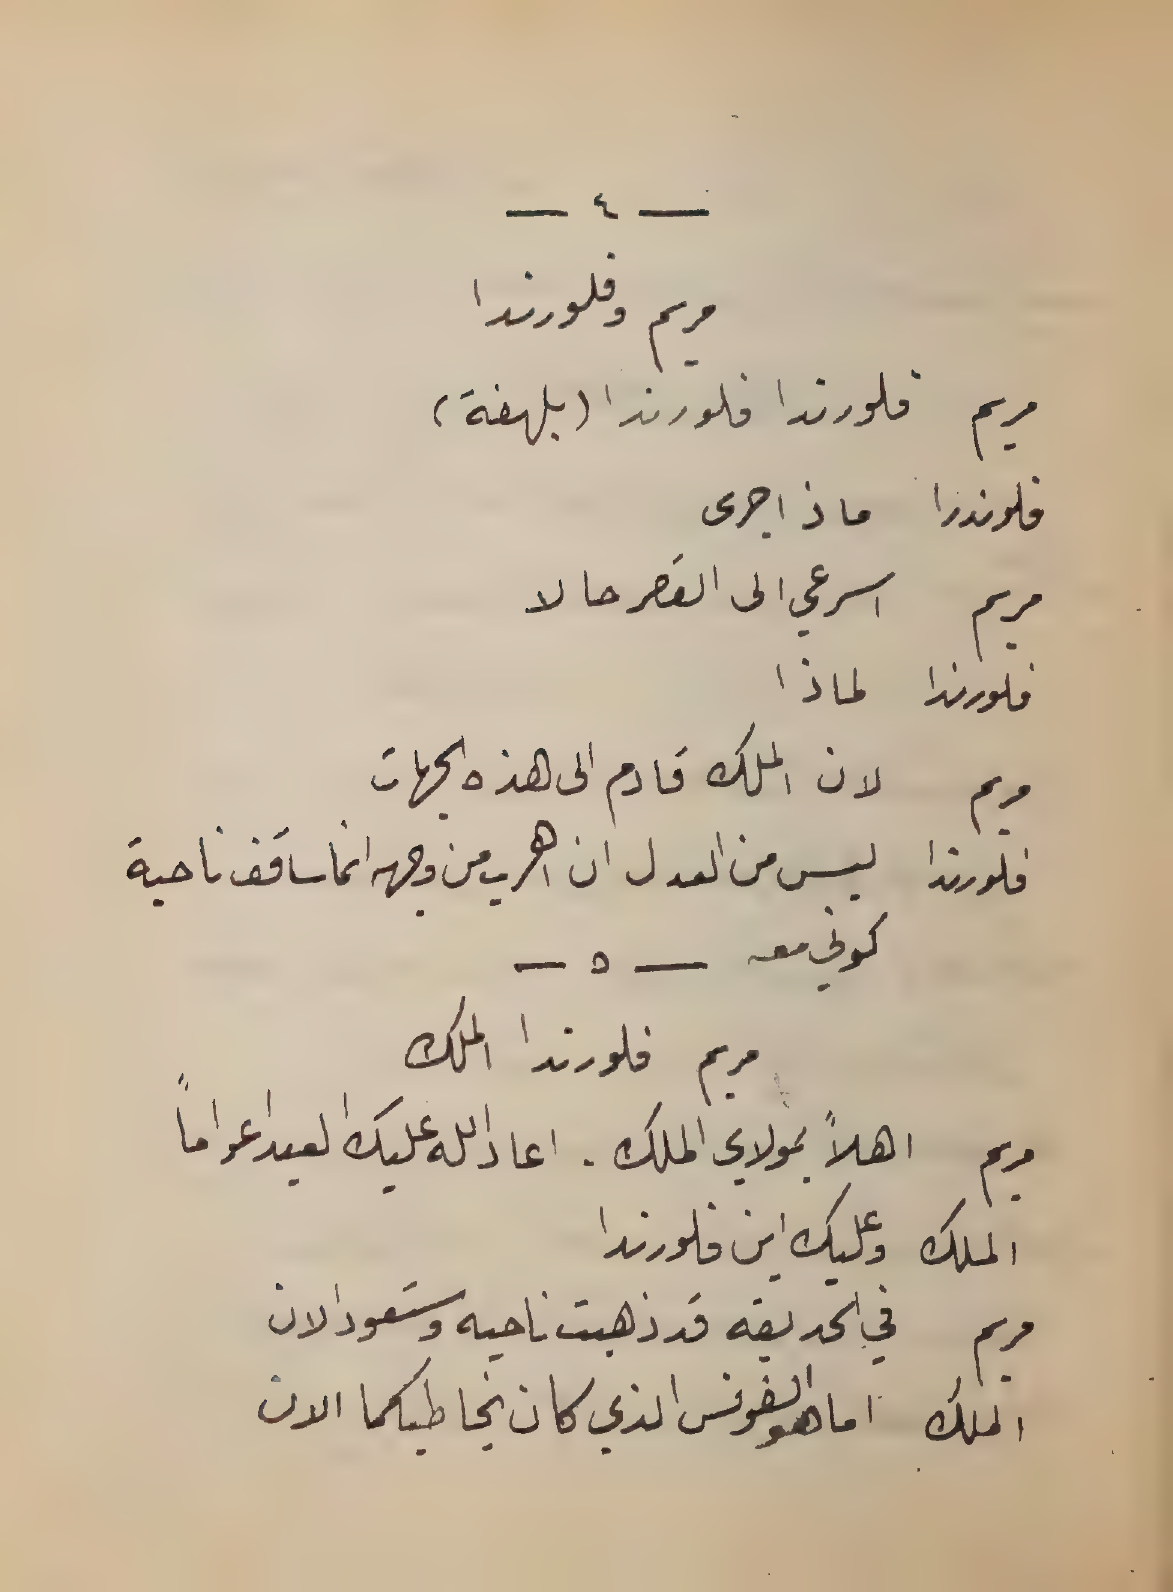 — ٤ —
مريم وفلورندا
مريم فلورندا فلورندا (بلهفة)
فلورندا ماذا جرى
مريم اسرعي الى القصر حالا
فلورندا لماذا
مريم لان الملك قادم الى هذه الجهات
فلورندا ليس من العدل ان اهرب من وجهه انما ساقف ناحية
كوني معه
— ٥ —
مريم فلورندا الملك
مريم اهلاً بمولاي الملك . اعاد الله عليك العيد اعواماً
الملك وعليك اين فلورندا
مريم في الحديقه قد ذهبت ناحيه وستعود الان
الملك اما هو الفونس الذي كان يخاطبكما الان